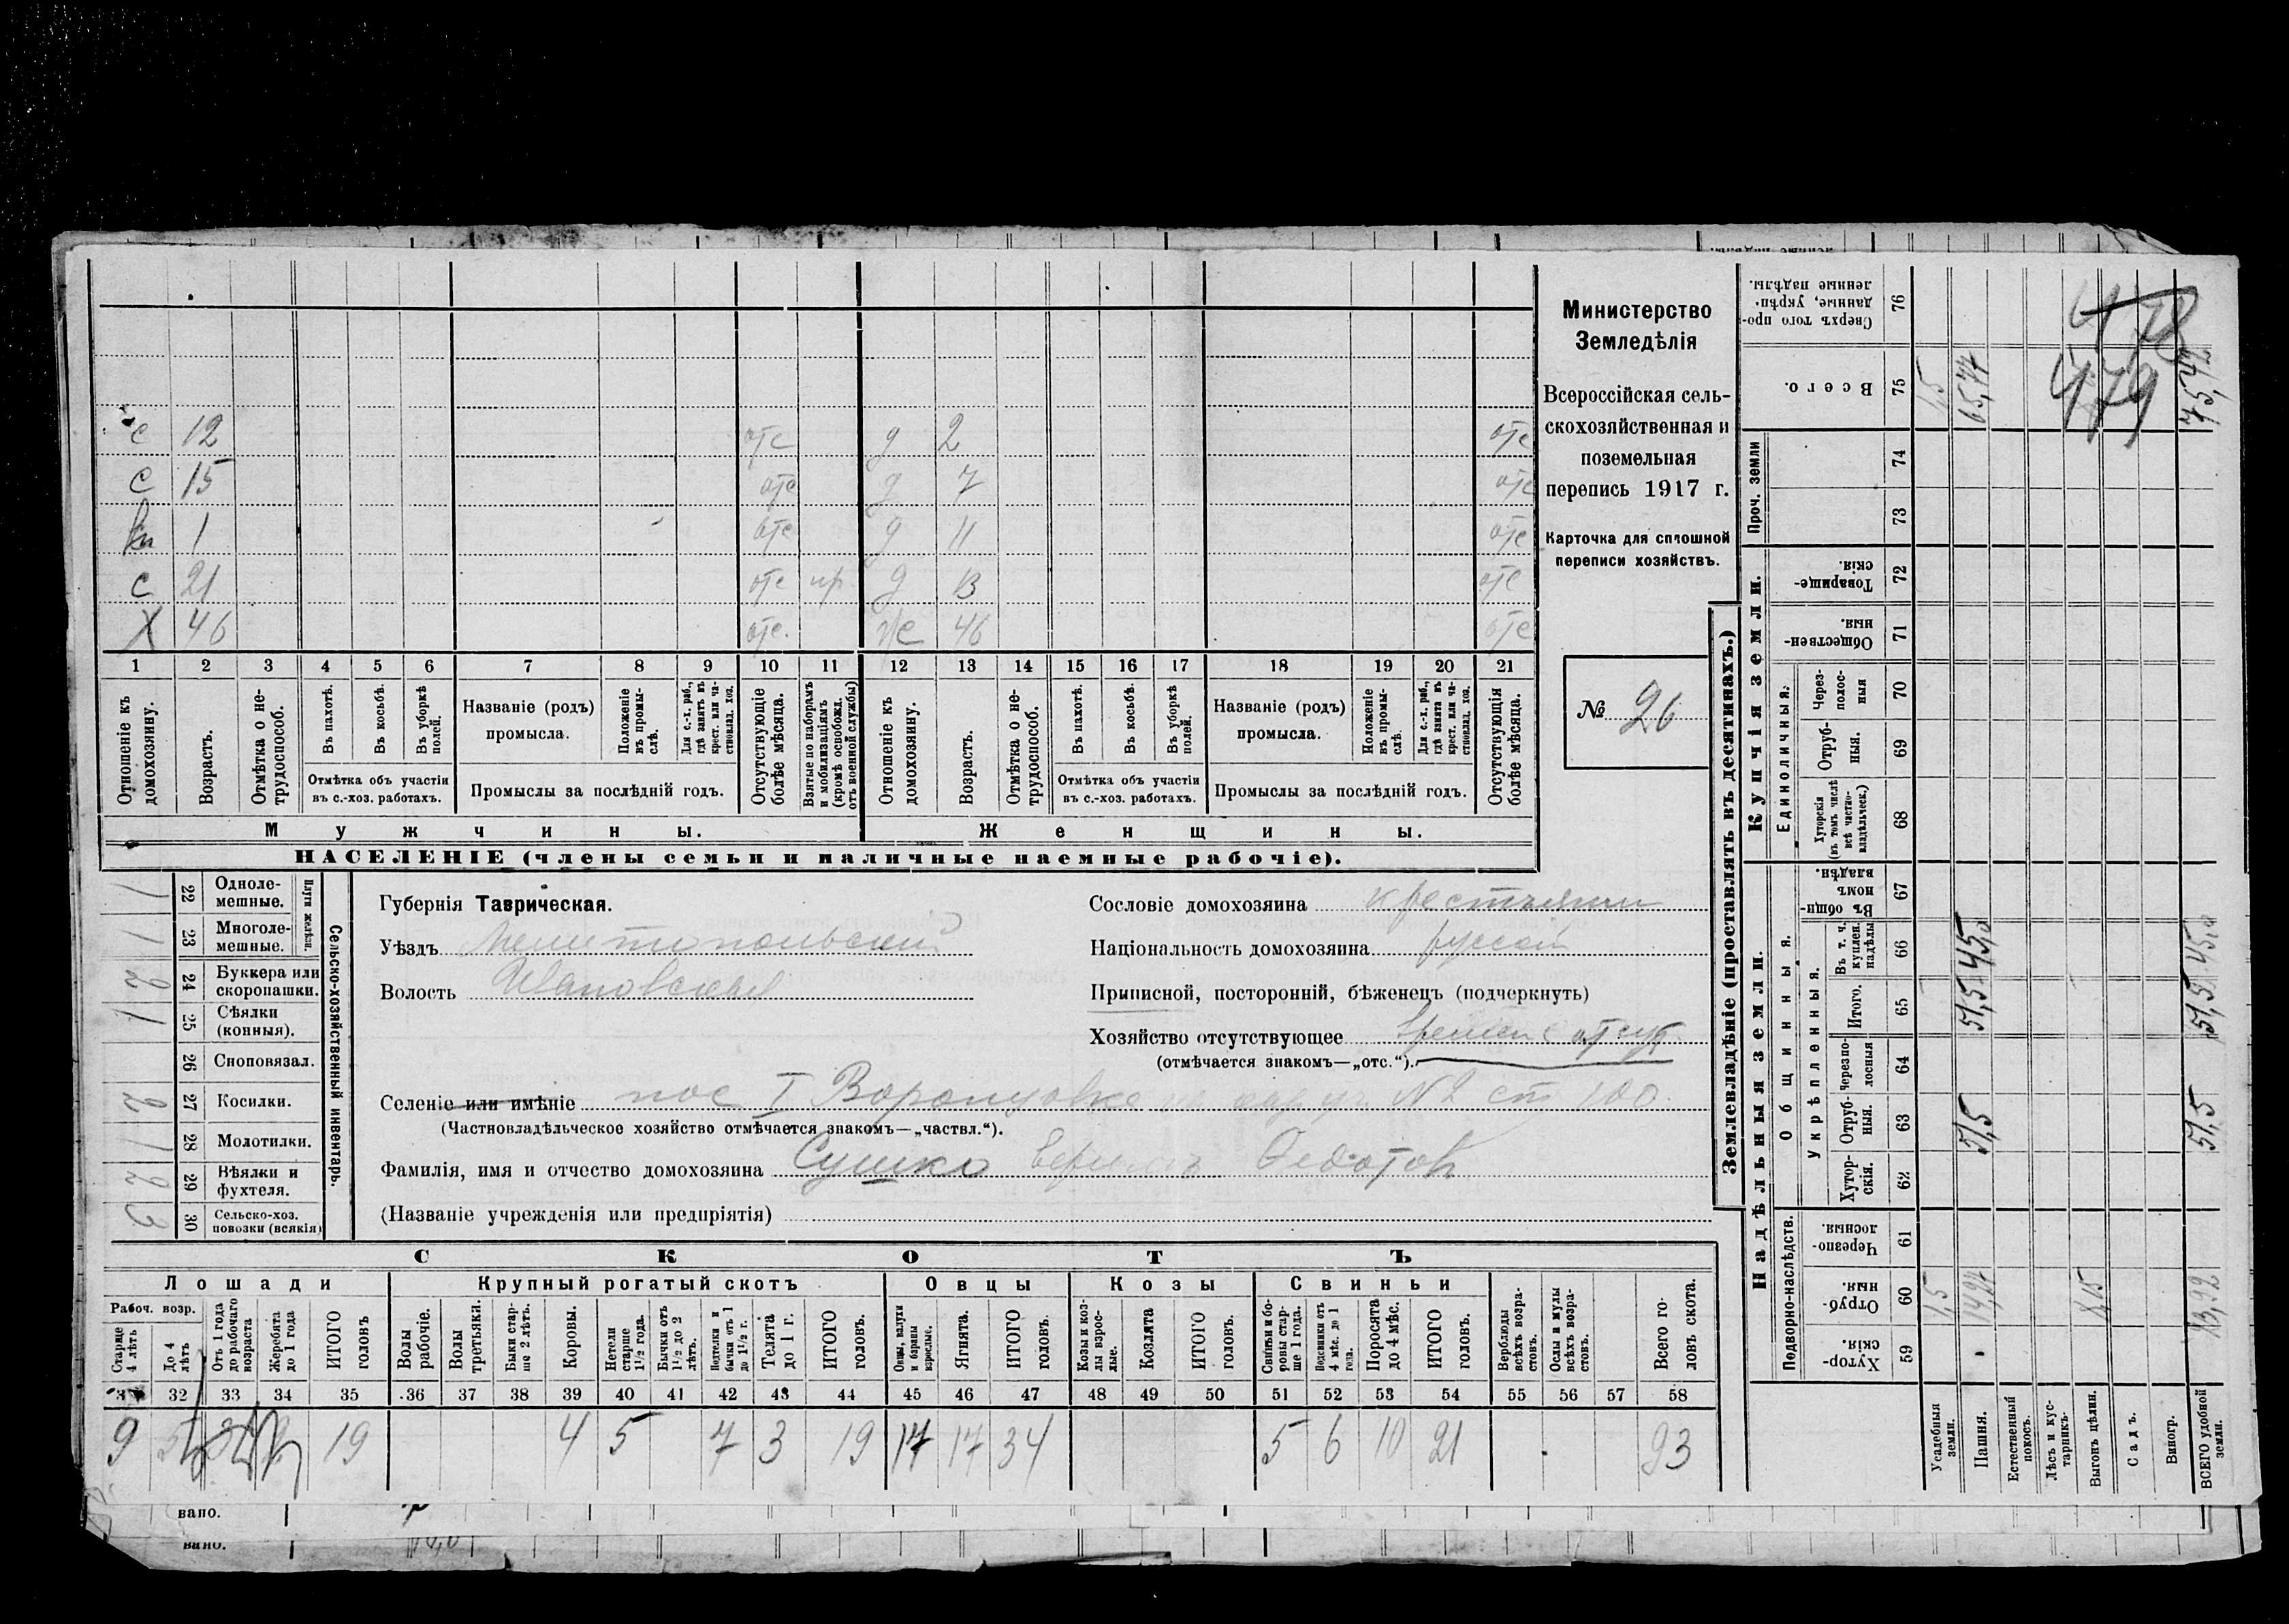 Министерство
Земледѣлія
Всероссійская сель-
скохозяйственная и
поземельная
перепись 1917 г.
Карточка для сплошной
переписи хозяйствъ.
№ 26
478
479
с 12 отс д 2 отс
с 15 отс д 7 отс
вн 1 отс д 11 отс
с 21 отс пр д 13 отс
Х 46 отс. же 46 отс
1 2 3 4 5 6 7 8 9 10 11 12 13 14 15 16 17 18 19 20 21
Отношеніе къ домохозяину. Возрастъ. Отмѣтка о не-трудоспособ. Въ пахотѣ. Въ косьбѣ. Въ уборкѣ полей. Названіе (родъ) промысла. Положеніе въ промы-слѣ. Для с.-х. раб., гдѣ занятъ въ крест. или ча-стновлад. хоз. Отсутствующіе болѣе мѣсяца. Взятые по наборамъ и мобилизаціямъ (кромѣ освобожд. отъ военной службы)
Отношеніе къ домохозяину. Возрастъ. Отмѣтка о не-трудоспособ. Въ пахотѣ. Въ косьбѣ. Въ уборкѣ полей. Названіе (родъ) промысла. Положеніе въ промы-слѣ. Для с.-х. раб., гдѣ занята въ крест. или ча-стновлад. хоз. Отсутствующія болѣе мѣсяца.
Отмѣтка объ участіи въ с.-хоз. работахъ. Промыслы за послѣдній годъ. Отмѣтка объ участіи въ с.-хоз. работахъ. Промыслы за послѣдній годъ.
Мужчины. Женщины.
НАСЕЛЕНІЕ (члены семьи и наличные наемные рабочіе).
Сельско-хозяйственный инвентарь.
Плуги желѣзн.
1 22 Одноле-мешные.
1 23 Многоле-мешные.
2 24 Буккера или скоропашки.
1 25 Сѣялки (конныя).
26 Сноповязал.
2 27 Косилки.
1 28 Молотилки.
2 29 Вѣялки и фухтеля.
3 30 Сельско-хоз. повозки (всякія)
Губернія Таврическая.
Уѣздъ Мелитопольский
Волость Ивановская
Сословіе домохозяина крестьянин
Національность домохозяина русский
Приписной, посторонній, бѣженецъ (подчеркнуть)
Хозяйство отсутствующее времен отсут
(отмѣчается знакомъ—„отс.“).
Селеніе или имѣніе пос I Воронцовка № 2 ст 100.
(Частновладѣльческое хозяйство отмѣчается знакомъ—„частвл.“).
Фамилія, имя и отчество домохозяина Сушко Ефим Федотов
(Названіе учрежденія или предпріятія)
СКОТЪ
Лошади Крупный рогатый скотъ Овцы Козы Свиньи
Рабоч. возр.
Старше 4 лѣтъ До 4 лѣтъ Отъ 1 года до рабочаго возраста Жеребята до 1 года ИТОГО головъ
Волы рабочіе. Волы третьяки. Быки стар-ше 2 лѣтъ. Коровы. Нетели старше 1½ года. Бычки отъ 1½ до 2 лѣтъ. Нетелки и бычки отъ 1 до 1½ г. Телята до 1 г. ИТОГО головъ.
Овцы, валухи и бараны взрослые. Ягнята. ИТОГО головъ.
Козы и коз-лы взрос-лые. Козлята ИТОГО головъ.
Свиньи и бо-ровы стар-ше 1 года. Подсвинки отъ 4 мѣс. до 1 года. Поросята до 4 мѣс. ИТОГО головъ.
Верблюды всѣхъ возра-стовъ. Ослы и мулы всѣхъ возра-стовъ. Всего го-ловъ скота.
32 33 34 35 36 37 38 39 40 41 42 43 44 45 46 47 48 49 50 51 52 53 54 55 56 57 58
9 19 4 5 7 3 19 17 17 34 5 6 10 21 93
Землевладѣніе (проставлять въ десятинахъ.)
Надѣльныя земли. Купчія земли. Проч. земли
Подворно-наслѣдств. Общинныя. Укрѣпленныя. Единоличныя.
Хутор-скія. 59
Отруб-ныя. 60
Черезпо-лосныя 61
Хутор-скія. 62
Отруб-ныя. 63
Черезпо-лосныя 64
Итого. 65
Въ т. ч. куплен. надѣлы 66
Въ общин-номъ владѣн. 67
Хуторскія (въ томъ числѣ всѣ частно-владѣльческ.) 68
Отруб-ныя. 69
Через-полос-ныя 70
Обществен-ныя. 71
Товарище-скія. 72
73
74
Всего. 75
Сверхъ того про-данные, укрѣп-ленные надѣлы. 76
Усадебныя земли. 1,5 1,5
Пашня. 14,27 51,5 51,5 45,0 65,77
Естественный покосъ.
Лѣсъ и кус-тарникъ.
Выгонъ цѣлин. 8,15
Садъ.
Виногр.
ВСЕГО удобной земли. 51,5 51,5 45,0
вано.
вано.